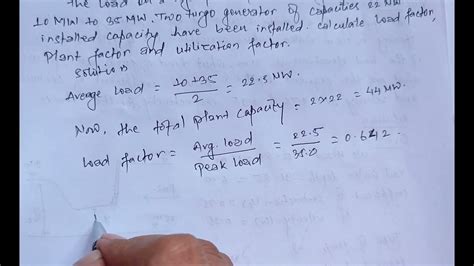 the load on a
10 MW to 35 MW. Two turgo generator of capacities 22 MW
installed capacity have been installed. calculate load factor,
plant factor and utilization factor.
solution
Average load = 10+35 / 2 = 22.5 MW.
Now, the total plant capacity = 2×22 = 44 MW.
Load factor = Avg. load / Peak load = 22.5 / 35.0 = 0.642